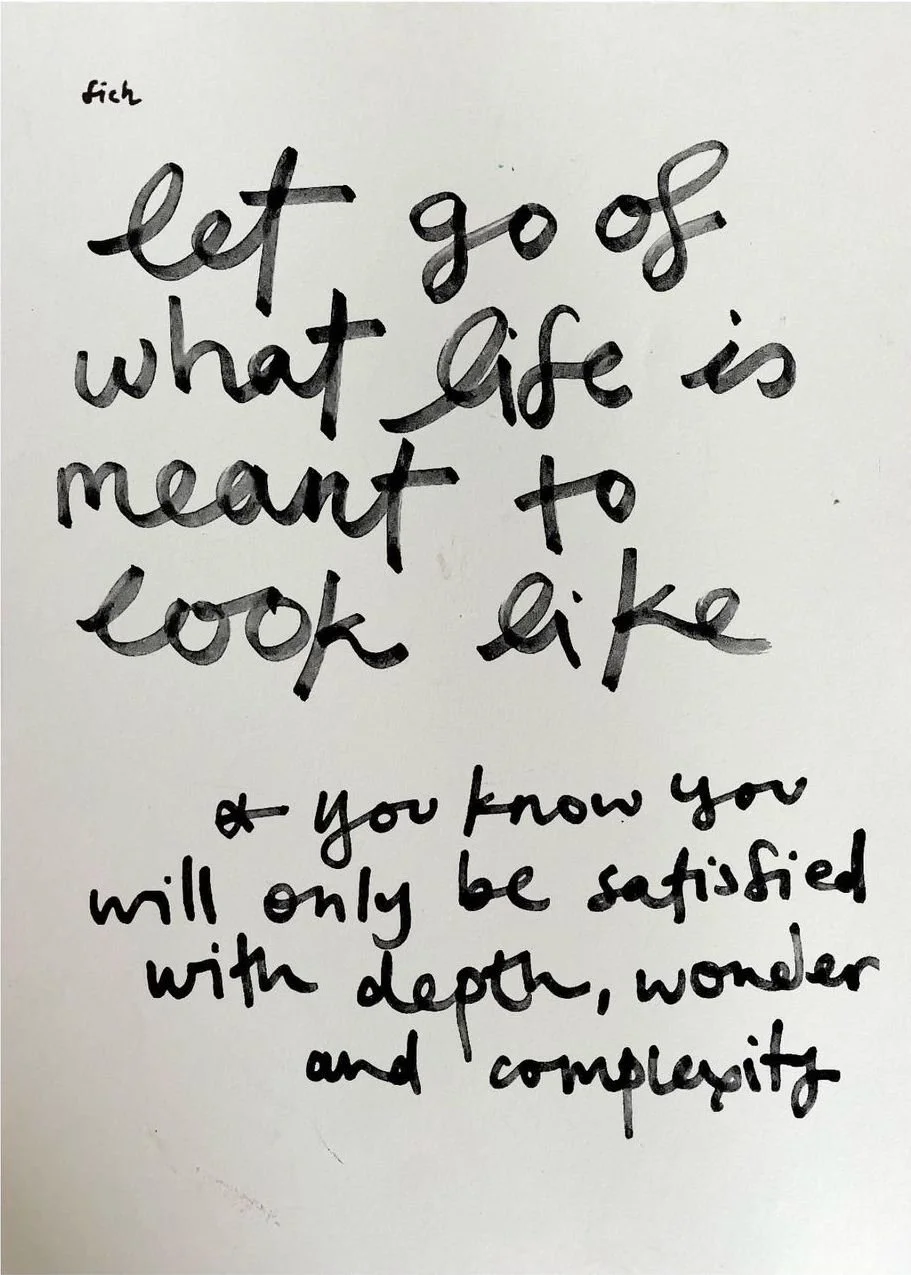 fich
let go of
what life is
meant to
look like
& you know you
will only be satisfied
with depth, wonder
and complexity